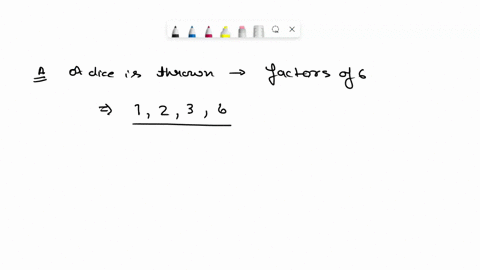 A A dice is thrown → factors of 6
⇒ 1, 2, 3, 6